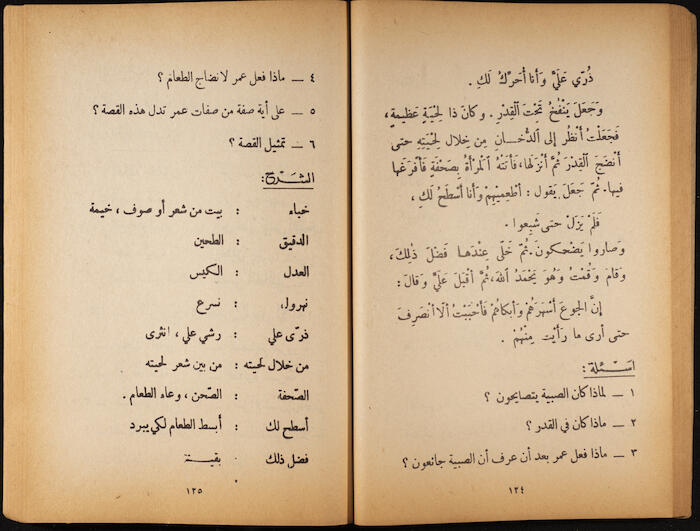 ذُرّي عَلَيَّ وَأنا أُحَرِّكُ لَكِ .
وَجَعَلَ يَنْفُخُ تَحْتَ ٱلقِدْرِ . وكانَ ذا لِحْيَةٍ عَظيمَةٍ ،
فَجَعَلْتُ أَنْظُرُ إلى ٱلدُّخَانِ مِن خِلالِ لِحْيَتِهِ حتى
أنْضَجَ ٱلقِدْرَ ثُمَّ أنْزَلَها، فأتَتْهُ ٱلمَرْأةُ بِصَحْفَةٍ فَأفْرَغَها
فيها. ثُمَّ جَعَلَ يَقول : أطْعِميهِمْ وَأنا أسْطَحُ لَكِ ،
فَلَمْ يَزَلْ حتى شَبِعوا .
وَصاروا يَضحكونَ. ثُمَّ خَلّى عِنْدَها فَضْلَ ذٰلِكَ،
وَقامَ وَقُمْتُ وَهُوَ يَحْمَدُ ٱللهَ، ثُمَّ أقْبَلَ عَلَيَّ وَقالَ :
إنَّ الجوعَ أسْهَرَهُمْ وَأبكاهُمْ فَأحْبَبْتُ ألّا أنْصَرِفَ
حتى أرى ما رَأيْتُ مِنْهُمْ .
اسئلة :
١ ـ لماذا كان الصبية يتصايحون ؟
٢ ـ ماذا كان في القدر ؟
٣ ـ ماذا فعل عمر بعد أن عرف أن الصبية جائعون ؟
١٢٤
٤ ـ ماذا فعل عمر لانضاج الطعام ؟
٥ ـ على أية صفة من صفات عمر تدل هذه القصة ؟
٦ ـ تمثيل القصة ؟
الشرح :
خباء : بيت من شعر أو صوف ، خيمة
الدقيق : الطحين
العدل : الكيس
نهرول : نسرع
ذرّى علي : رشي علي ، انثرى
من خلال لحيته : من بين شعر لحيته
الصّحفة : الصّحن ، وعاء الطعام .
أسطح لك : أبسط الطعام لكي يبرد
فضل ذلك : بقية
١٢٥